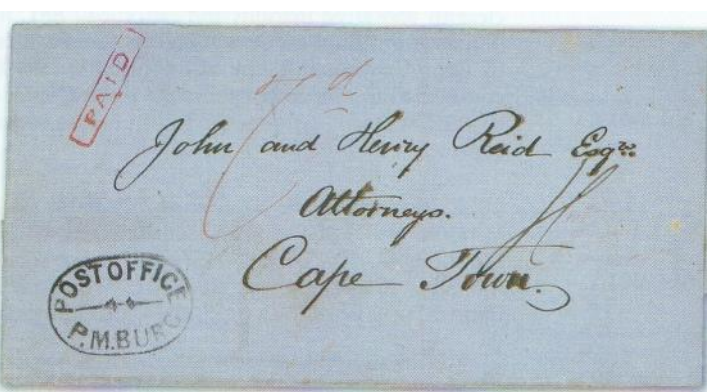 PAID
d
John and Henry Reid Esqrs.
Attorneys.
Cape Town.
POST OFFICE
P.M.BURG